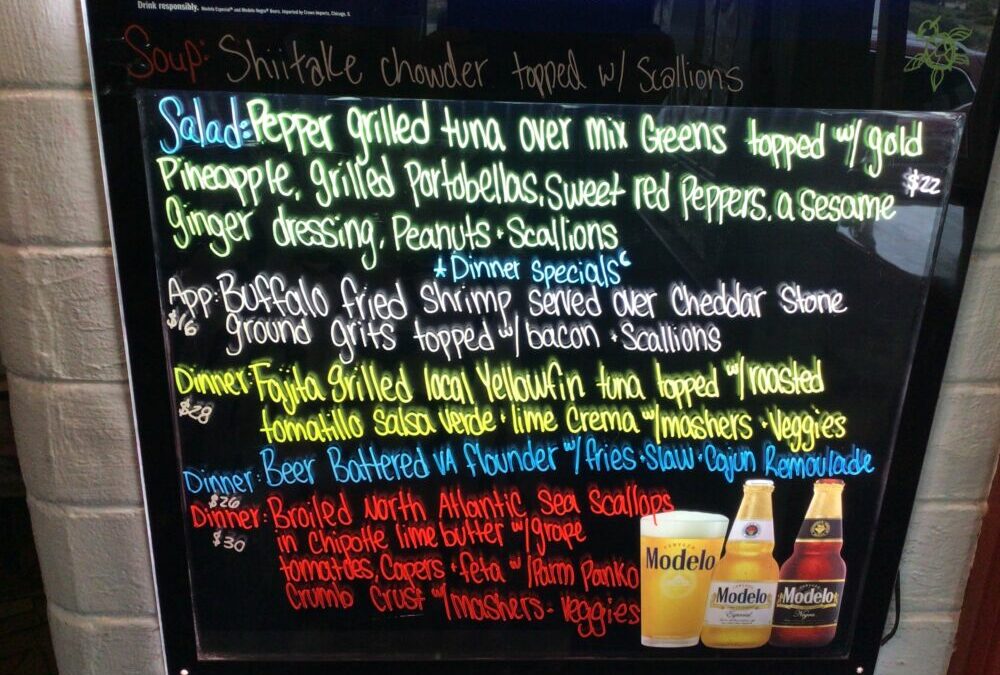 Drink responsibly. Modelo Especial® and Modelo Negra® Beers. Imported by Crown Imports, Chicago, IL
Soup: Shiitake chowder topped w/ Scallions
Salad: Pepper grilled tuna over mix Greens topped w/ gold
Pineapple, grilled Portobellas, Sweet red Peppers, a sesame
$22
ginger dressing, Peanuts + Scallions
*Dinner specials*
App: Buffalo fried shrimp served over Cheddar Stone
$16 ground grits topped w/ bacon + Scallions
Dinner: Fajita grilled local Yellowfin tuna topped w/ roasted
$28 tomatillo salsa verde + lime crema w/ mashers + Veggies
Dinner: Beer Battered VA flounder w/ fries + Slaw + Cajun Remoulade
$26
Dinner: Broiled North Atlantic Sea Scallops
$30 in chipotle lime butter w/ grape
tomatoes, Capers + feta w/ Parm Panko
Crumb Crust w/ mashers + Veggies
Modelo
Modelo
Especial
Modelo
Negra